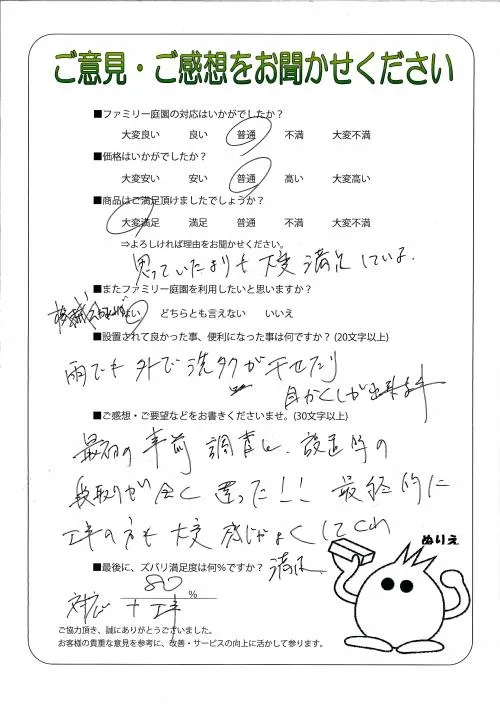 ご意見・ご感想をお聞かせください
■ファミリー庭園の対応はいかがでしたか？
大変良い 良い 普通 不満 大変不満
■価格はいかがでしたか？
大変安い 安い 普通 高い 大変高い
■商品はご満足頂けましたでしょうか？
大変満足 満足 普通 不満 大変不満
⇒よろしければ理由をお聞かせください。
思っていたよりも大変満足している.
■またファミリー庭園を利用したいと思いますか？
はい どちらとも言えない いいえ
■設置されて良かった事、便利になった事は何ですか？(20文字以上)
雨でも外で洗タクが干せたり
目かくしが出来ます
■ご感想・ご要望などをお書きくださいませ。(30文字以上)
最初の事前調査と、設置時の
段取りが全く違った!! 最終的に
工事の方も大変感じがよくしてくれ
満足
ぬりえ
■最後に、ズバリ満足度は何%ですか？
80 %
対応 + 工事
ご協力頂き、誠にありがとうございました。
お客様の貴重な意見を参考に、改善・サービスの向上に活かして参ります。